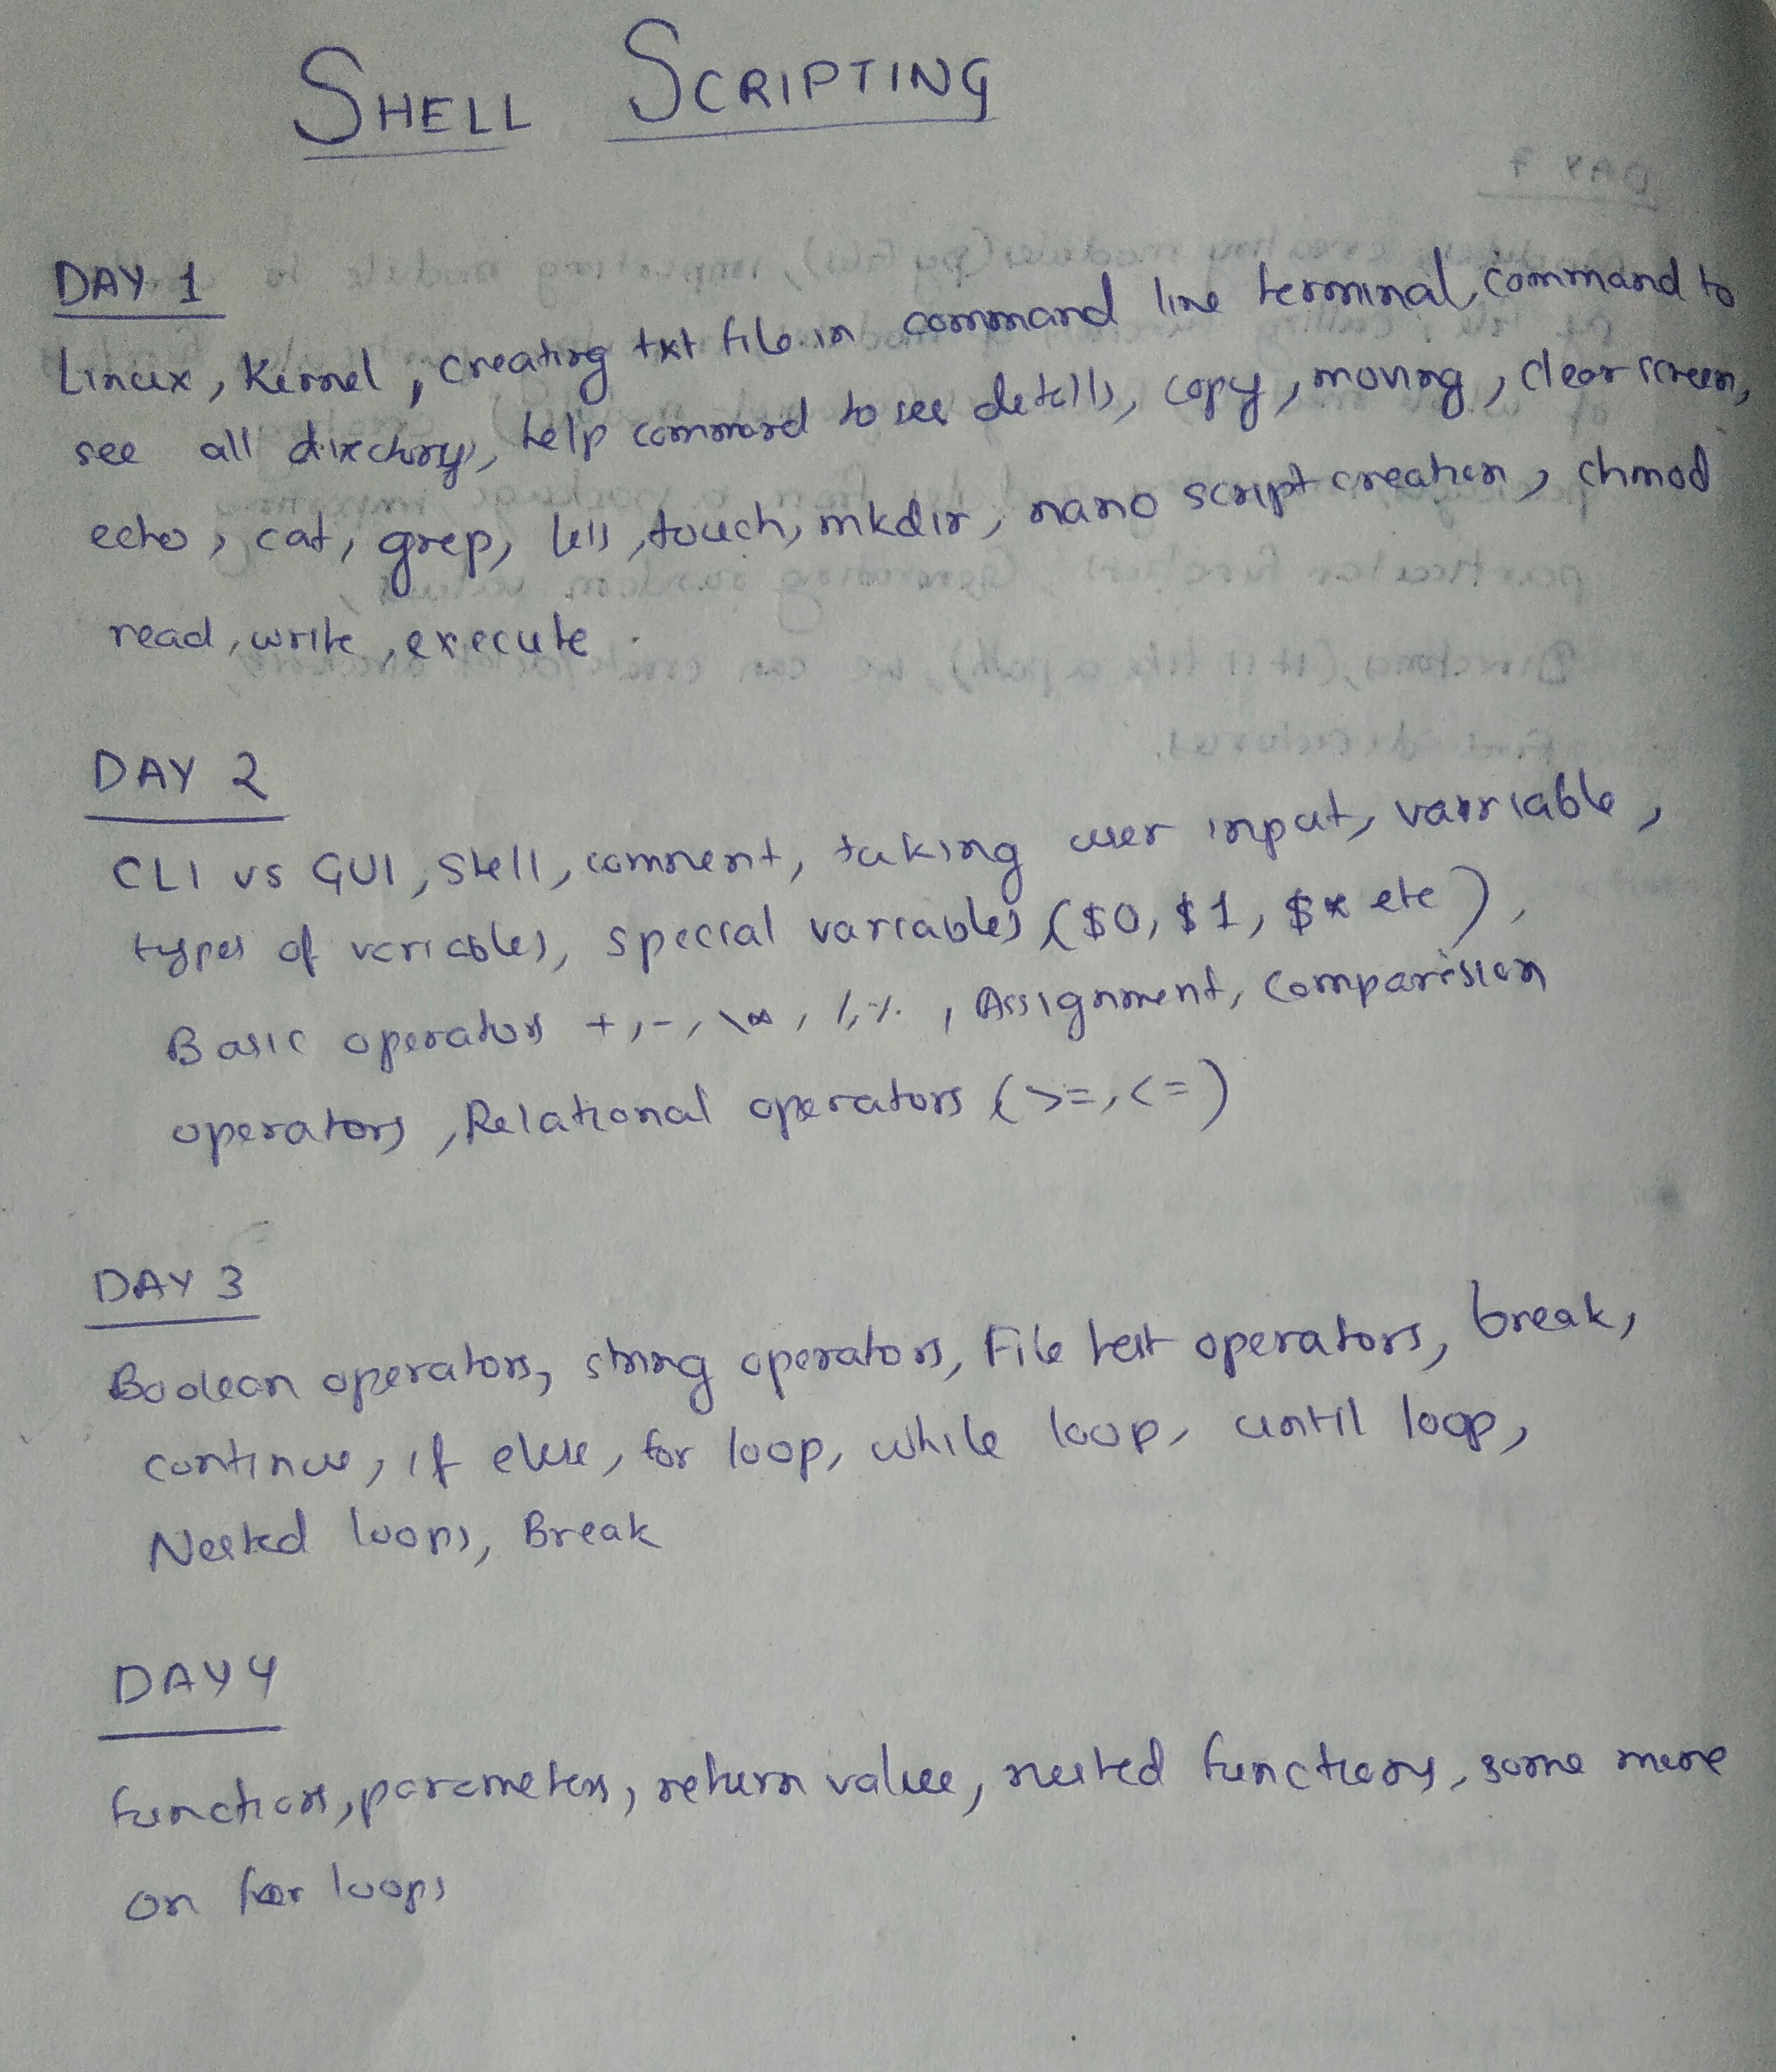 SHELL SCRIPTING
DAY 1
Linux, Kernel, creating txt file in command line terminal, command to
see all directory, help command to see details, copy, moving, clear screen,
echo, cat, grep, less, touch, mkdir, nano script creation, chmod
read, write, execute.
DAY 2
CLI vs GUI, Shell, comment, taking user input, variable,
types of variables, special variables ($0, $1, $* etc),
Basic operators +, -, \*, /, %, Assignment, Comparision
operators, Relational operators (>=, <=)
DAY 3
Boolean operators, string operators, File test operators, break,
continue, if else, for loop, while loop, until loop,
Nested loops, Break
DAY 4
functions, parameters, return value, nested functions, some more
on for loops